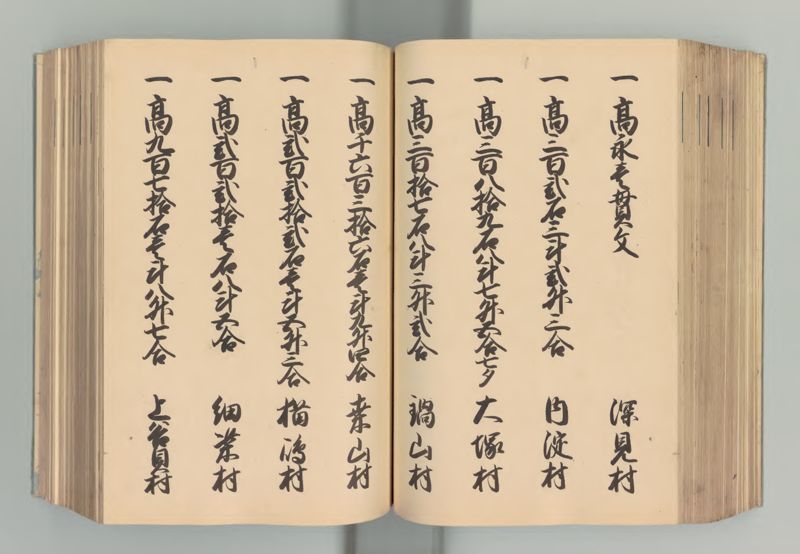 一 高永壱貫文 深見村
一 高三百弐石三斗弐升三合 内淀村
一 高三百八拾九石八斗七升六合七夕 大塚村
一 高三百拾七石八斗三升弐合 鍋山村
一 高千六百三拾六石壱斗九升四合 山村
一 高弐百弐拾弐石壱斗五升三合 村
一 高弐百弐拾壱石八斗六合 細葉村
一 高九百七拾石壱斗八升七合 上谷貝村